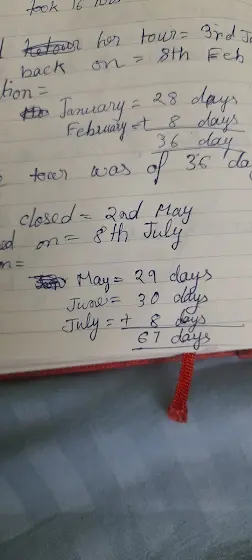 took 16 hou
her tour = 3rd J
back on = 8th Feb
tion =
January = 28 days
February = + 8 days
36 day
tour was of 36 da
closed = 2nd May
ed on = 8th July
n =
May = 29 days
June = 30 days
July = + 8 days
67 days